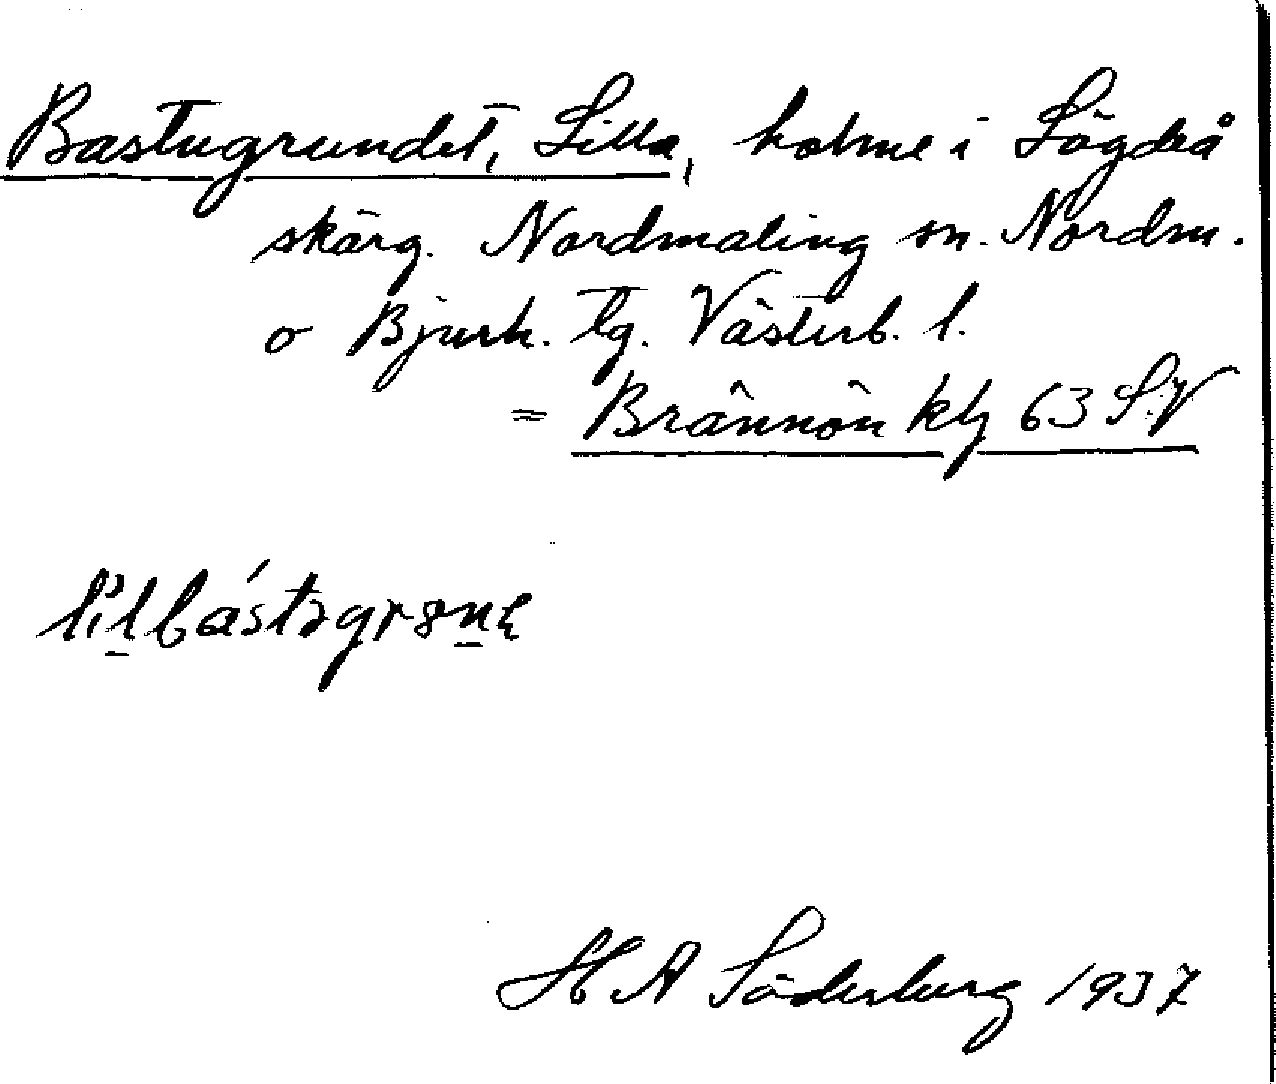 Bastugrundet, Lilla, holme i Lögdeå
skärg. Nordmaling sn. Nordm.
o Bjurh. tg. Västerb. l.
= Brännön klj 63 SV
H A Söderberg 1937